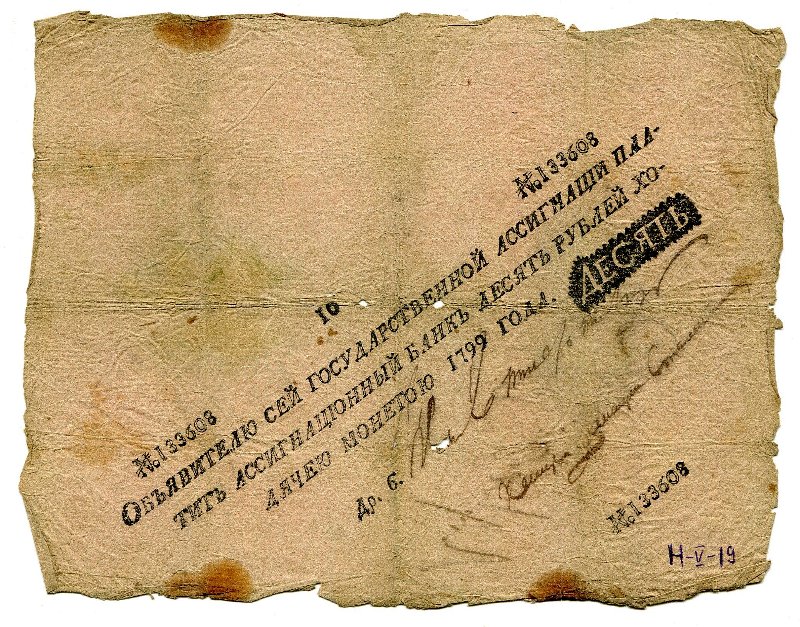 №133608
10
№133608
Объявителю сей государственной ассигнаціи пла-
титъ ассигнаціонный банкъ десять рублей хо-
дячею монетою 1799 года.
ДЕСЯТЬ
Др. 6.
№133608
Н-V-19